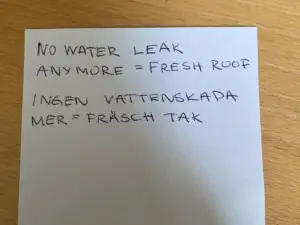 NO WATER LEAK
ANYMORE = FRESH ROOF
INGEN VATTENSKADA
MER = FRÄSCH TAK